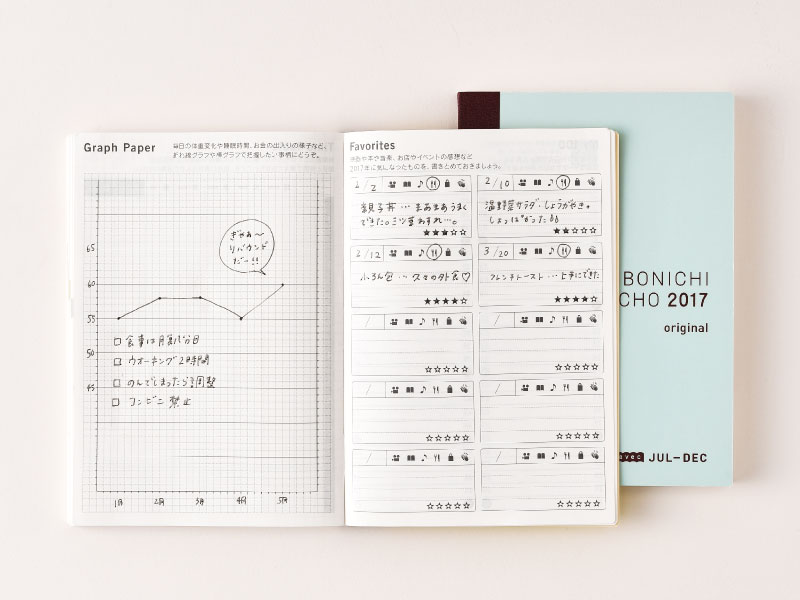 Graph Paper
毎日の体重変化や睡眠時間、お金の出入りの様子など、
折れ線グラフや棒グラフで把握したい事柄にどうぞ。
65
60
55
50
45
ぎゃあ〜
リバウンド
だー!!
食事は腹八分目
ウオーキング2時間
のんでしまったら調整
コンビニ 禁止
1月
2月
3月
4月
5月
Favorites
映画や本や音楽、お店やイベントの感想など
2017年に気になったものを、書きとめておきましょう。
2/2
親子丼…まあまあうまく
できた。三ツ葉わすれ…。
★★★☆☆
2/10
温野菜サラダ・しょうがやき。
★★☆☆☆
2/12
小ろん包…久々の外食♡
★★★★☆
3/20
フレンチトースト…上手にできた
★★★★☆
/
☆☆☆☆☆
/
☆☆☆☆☆
/
☆☆☆☆☆
/
☆☆☆☆☆
/
☆☆☆☆☆
/
☆☆☆☆☆
BONICHI
CHO 2017
original
JUL–DEC